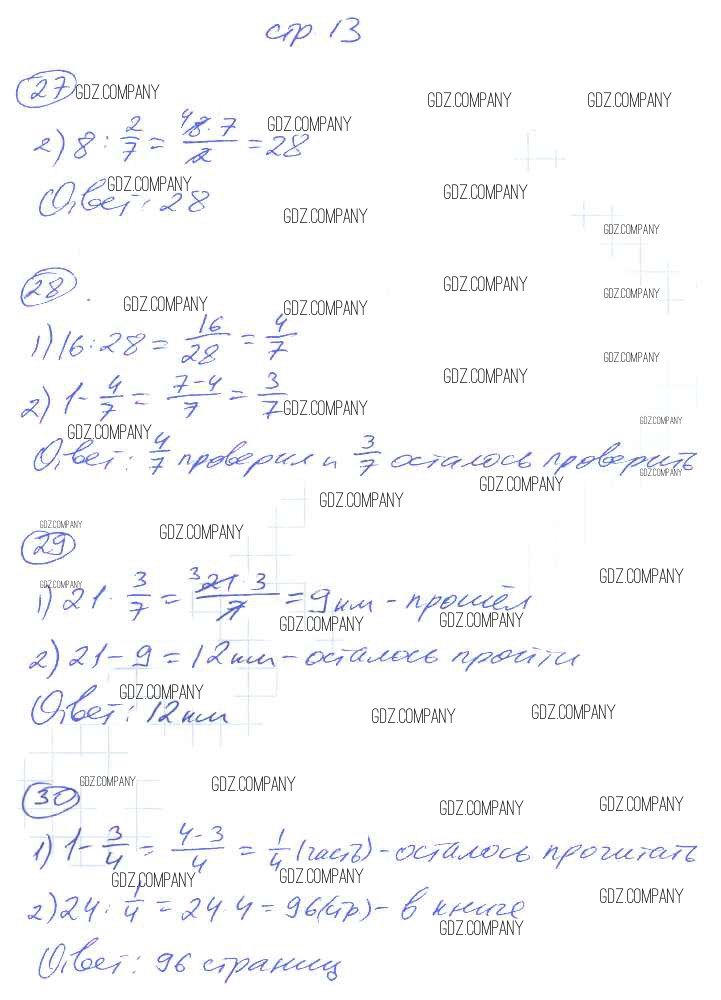 стр 13
27 GDZ.COMPANY GDZ.COMPANY GDZ.COMPANY
2) 8 : 2/7 = 8·7/2 = 28 GDZ.COMPANY
Ответ: 28 GDZ.COMPANY GDZ.COMPANY
GDZ.COMPANY GDZ.COMPANY
28 GDZ.COMPANY GDZ.COMPANY
GDZ.COMPANY GDZ.COMPANY
1) 16 : 28 = 16/28 = 4/7 GDZ.COMPANY
2) 1 - 4/7 = 7-4/7 = 3/7 GDZ.COMPANY GDZ.COMPANY
GDZ.COMPANY GDZ.COMPANY
Ответ: 4/7 проверил и 3/7 осталось проверить
GDZ.COMPANY GDZ.COMPANY GDZ.COMPANY
GDZ.COMPANY GDZ.COMPANY
29
GDZ.COMPANY GDZ.COMPANY
1) 21 · 3/7 = 21·3/7 = 9 км - прошёл
GDZ.COMPANY GDZ.COMPANY
2) 21 - 9 = 12 км - осталось пройти
GDZ.COMPANY
Ответ: 12 км GDZ.COMPANY GDZ.COMPANY
30 GDZ.COMPANY GDZ.COMPANY GDZ.COMPANY GDZ.COMPANY
1) 1 - 3/4 = 4-3/4 = 1/4 (часть) - осталось прочитать
GDZ.COMPANY GDZ.COMPANY GDZ.COMPANY
2) 24 : 1/4 = 24·4 = 96 (стр) - в книге
GDZ.COMPANY
Ответ: 96 страниц